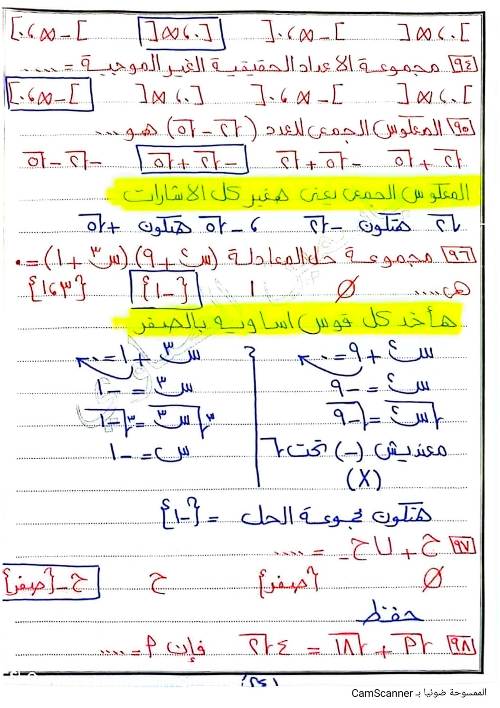 ]٠، ∞[ ]−∞، ٠[ [٠، ∞[ ]−∞، ٠]
٩٤ مجموعة الاعداد الحقيقية الغير الموجبة = ....
]٠، ∞[ ]−∞، ٠[ [٠، ∞[ ]−∞، ٠]
٩٥ المعكوس الجمعى للعدد (√٢ − √٥) هو ....
√٢ + √٥ −√٥ + √٢ −√٢ + √٥ −√٢ − √٥
المعكوس الجمعى يعنى هغير كل الاشارات
√٢ هتكون −√٢ ، −√٥ هتكون +√٥
٩٦ مجموعة حل المعادلة (س٢ + ٩)(س٣ + ١) = ٠
هى .... ∅ ١ {−١} {٣، ١}
هأخد كل قوس اساويه بالصفر
س٢ + ٩ = ٠ س٣ + ١ = ٠
س٢ = −٩ س٣ = −١
√س٢ = √−٩ ٣√س٣ = ٣√−١
معنديش (−) تحت √ س = −١
(X)
هتكون مجموعة الحل = {−١}
٩٧ ح+ ∪ ح− = ....
∅ {صفر} ح ح − {صفر}
حفظ
٩٨ √م + √١٨ = ٤√٢ فإن م = ....
الممسوحة ضوئيا بـ CamScanner